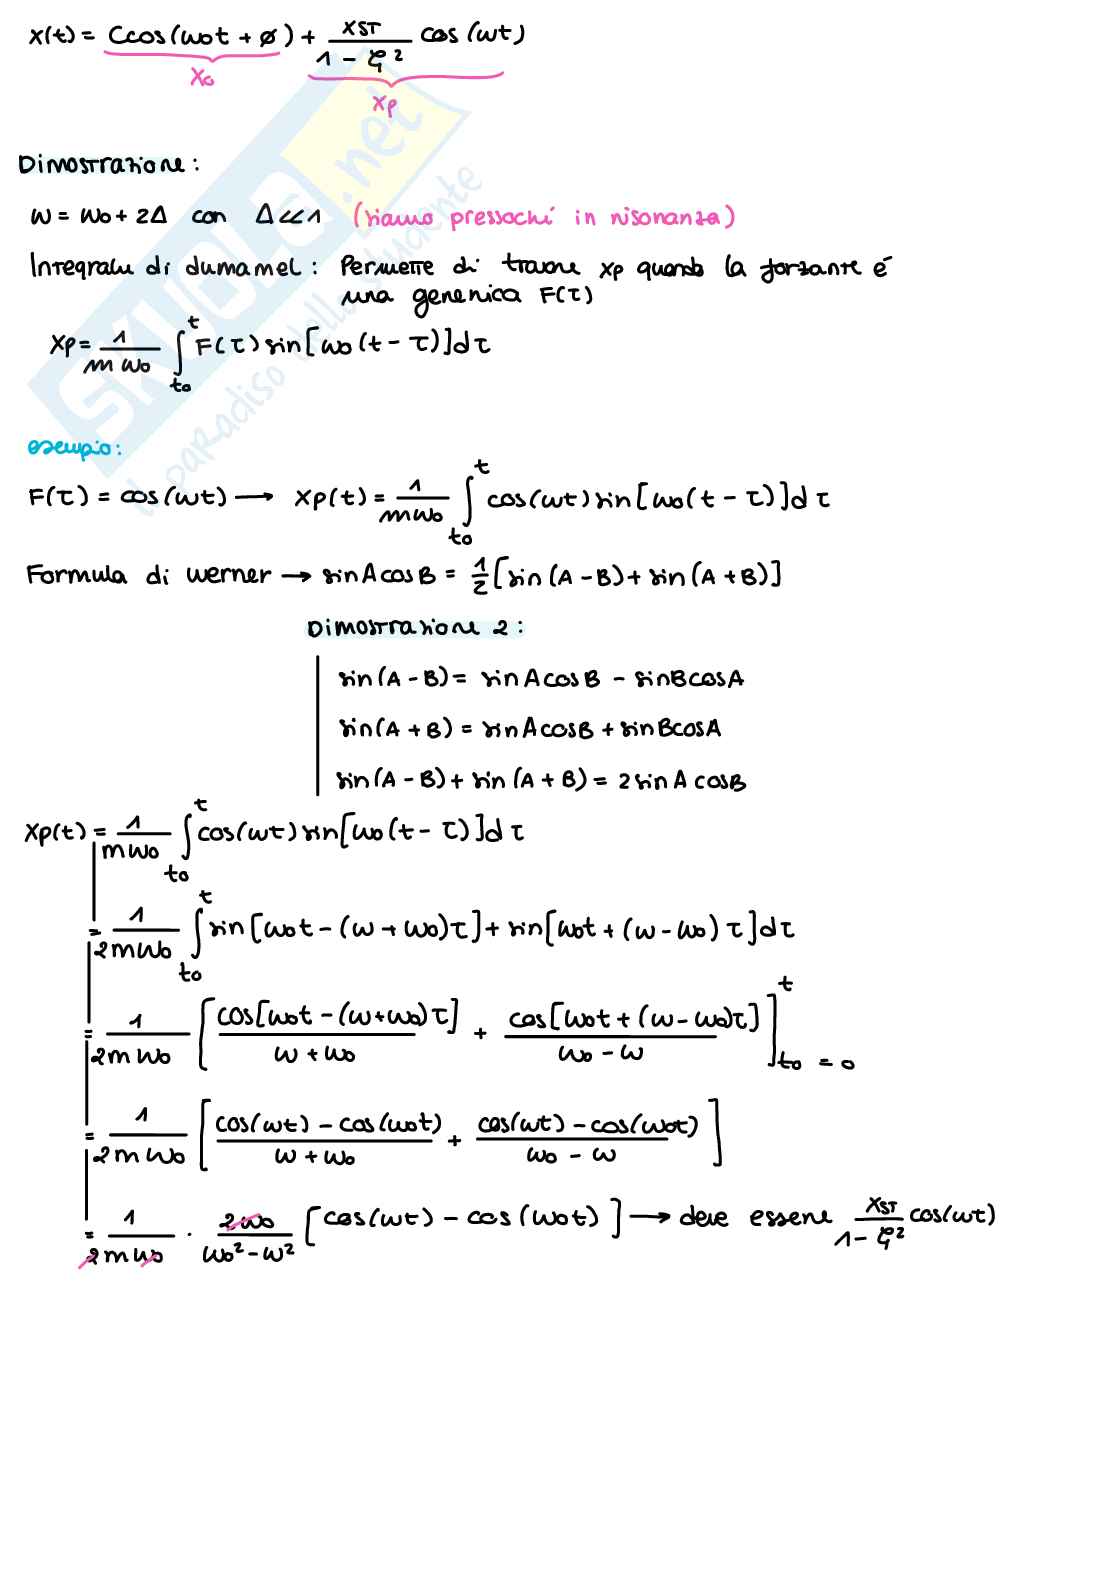 x(t) = Ccos(ω0t + ø) + xST/(1 - ξ²) cos(ωt)
x0
xp
Dimostrazione:
ω = ω0 + 2Δ con Δ<<1 (siamo pressochí in risonanza)
Integrale di dumamel: Permette di trovare xp quando la forzante é
una generica F(τ)
xp = 1/(mω0) ∫_t0^t F(τ) sin[ω0(t - τ)]dτ
esempio:
F(τ) = cos(ωt) → xp(t) = 1/(mω0) ∫_t0^t cos(ωt) sin[ω0(t - τ)]dτ
Formula di werner → sinAcosB = 1/2[sin(A-B) + sin(A+B)]
Dimostrazione 2:
sin(A-B) = sinAcosB - sinBcosA
sin(A+B) = sinAcosB + sinBcosA
sin(A-B) + sin(A+B) = 2sinAcosB
xp(t) = 1/(mω0) ∫_t0^t cos(ωt) sin[ω0(t - τ)]dτ
= 1/(2mω0) ∫_t0^t sin[ω0t - (ω + ω0)τ] + sin[ω0t + (ω - ω0)τ]dτ
= 1/(2mω0) [cos[ω0t - (ω+ω0)τ]/(ω + ω0) + cos[ω0t + (ω - ω0)τ]/(ω0 - ω)]_t0 = 0^t
= 1/(2mω0) [(cos(ωt) - cos(ω0t))/(ω + ω0) + (cos(ωt) - cos(ω0t))/(ω0 - ω)]
= 1/(2mω0) · 2ω0/(ω0² - ω²) [cos(ωt) - cos(ω0t)] → deve essere xST/(1 - ξ²) cos(ωt)
SKUOLA.net
il paradiso dello studente